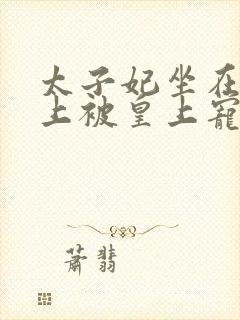 太子妃坐在
上被皇上寵
蕭翡